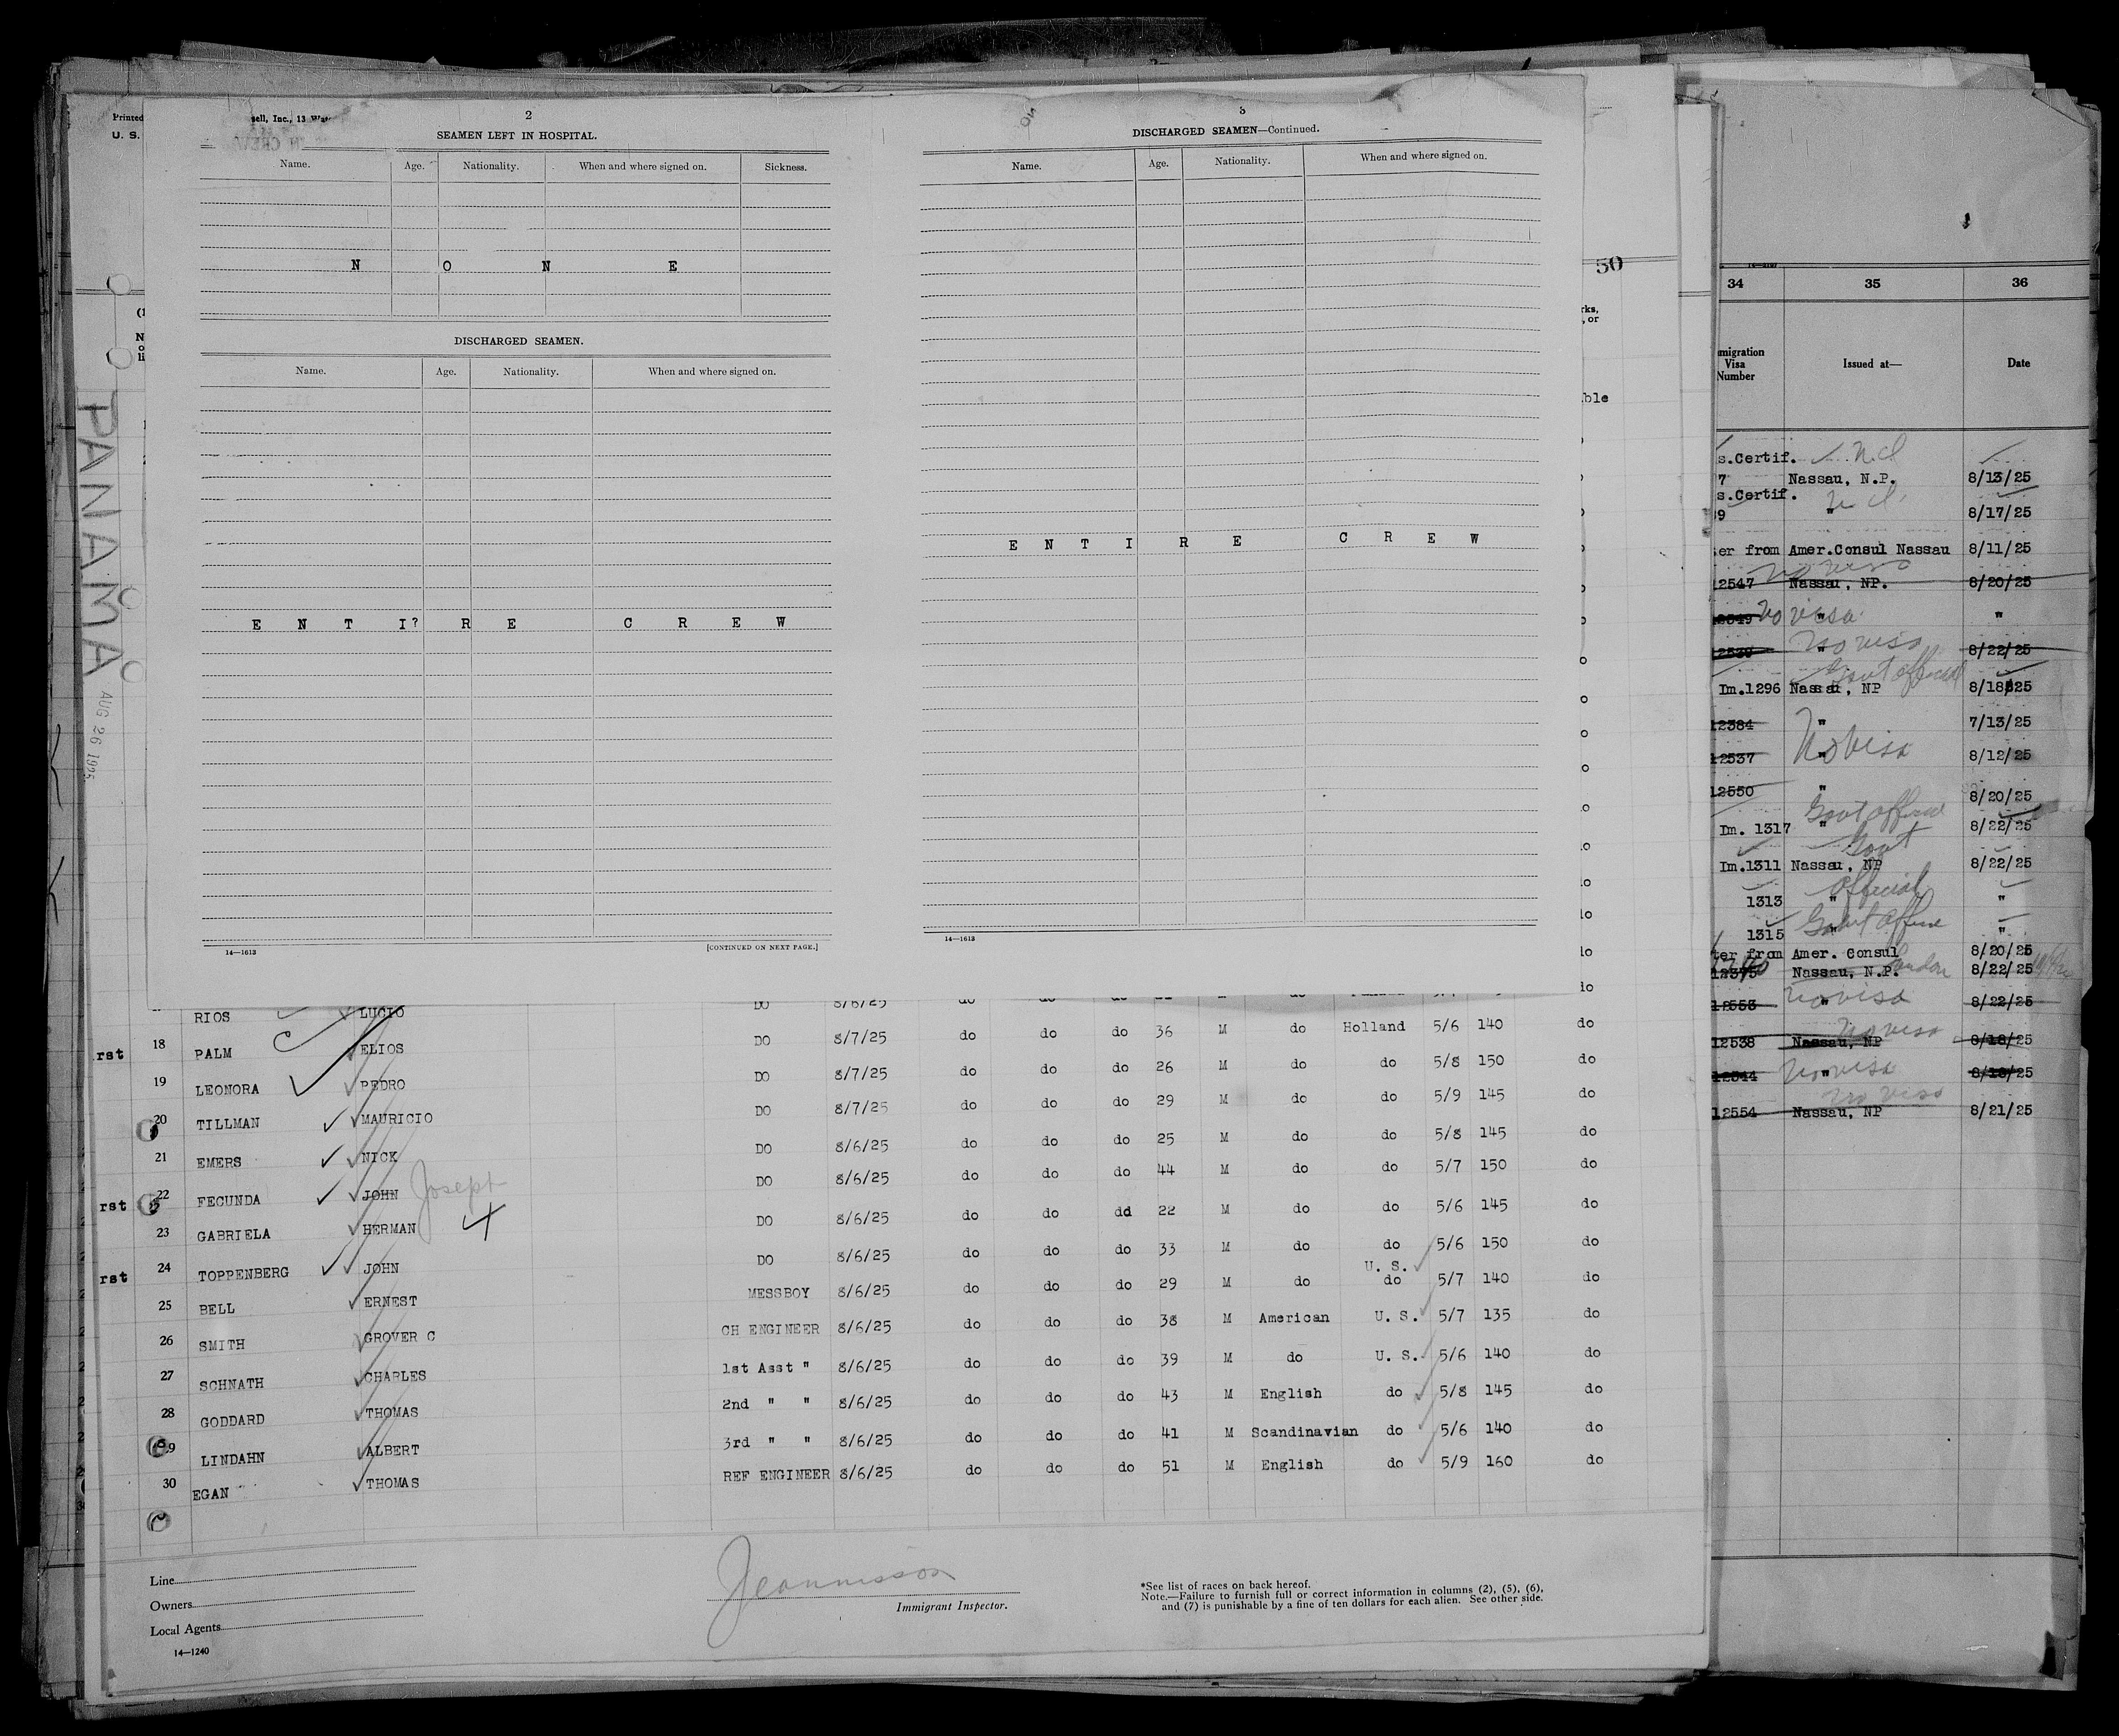 Printed
U. S.
sell, Inc., 13
2
SEAMEN LEFT IN HOSPITAL.
Name. Age. Nationality. When and where signed on. Sickness.
N O N E
DISCHARGED SEAMEN.
Name. Age. Nationality. When and where signed on.
E N T I? R E C R E W
14—1613 [CONTINUED ON NEXT PAGE.]
3
DISCHARGED SEAMEN—Continued.
Name. Age. Nationality. When and where signed on.
E N T I R E C R E W
14—1613
PANAMA
AUG 26 1925
50
rks,
, or
ble
34 35 36
migration Visa Number Issued at— Date
s.Certif.
7 Nassau, N.P. 8/13/25
s.Certif.
9 " 8/17/25
er from Amer.Consul Nassau 8/11/25
12547 Nassau, NP. 8/20/25
No visa "
12539 " No visa 8/22/25
Govt official
Im.1296 Nassau, NP 8/18/25
12384 " 7/13/25
12537 " No visa 8/12/25
12550 " 8/20/25
Govt official
Im. 1317 " 8/22/25
Govt
Im.1311 Nassau, NP 8/22/25
official
1313 " "
1315 " "
ter from Amer. Consul 8/20/25
12375 Nassau, N.P. London 8/22/25
12553 " No visa 8/22/25
No visa
12538 Nassau, NP 8/18/25
12544 " No visa 8/18/25
No visa
12554 Nassau, NP 8/21/25
RIOS LUCIO DO 8/6/25 do do do
rst 18 PALM ELIOS DO 8/7/25 do do do 36 M do Holland 5/6 140 do
19 LEONORA PEDRO DO 8/7/25 do do do 26 M do do 5/8 150 do
20 TILLMAN MAURICIO DO 8/7/25 do do do 29 M do do 5/9 145 do
21 EMERS NICK DO 8/6/25 do do do 25 M do do 5/8 145 do
rst 22 FECUNDA JOHN Joseph DO 8/6/25 do do do 44 M do do 5/7 150 do
23 GABRIELA HERMAN DO 8/6/25 do do dd 22 M do do 5/6 145 do
rst 24 TOPPENBERG JOHN DO 8/6/25 do do do 33 M do do 5/6 150 do
U. S.
25 BELL ERNEST MESSBOY 8/6/25 do do do 29 M do do 5/7 140 do
26 SMITH GROVER C CH ENGINEER 8/6/25 do do do 38 M American U. S. 5/7 135 do
27 SCHNATH CHARLES 1st Asst " 8/6/25 do do do 39 M do U. S. 5/6 140 do
28 GODDARD THOMAS 2nd " " 8/6/25 do do do 43 M English do 5/8 145 do
29 LINDAHN ALBERT 3rd " " 8/6/25 do do do 41 M Scandinavian do 5/6 140 do
30 EGAN THOMAS REF ENGINEER 8/6/25 do do do 51 M English do 5/9 160 do
Line
Owners
Local Agents
14—1240
Immigrant Inspector.
*See list of races on back hereof.
Note.—Failure to furnish full or correct information in columns (2), (5), (6),
and (7) is punishable by a fine of ten dollars for each alien. See other side.